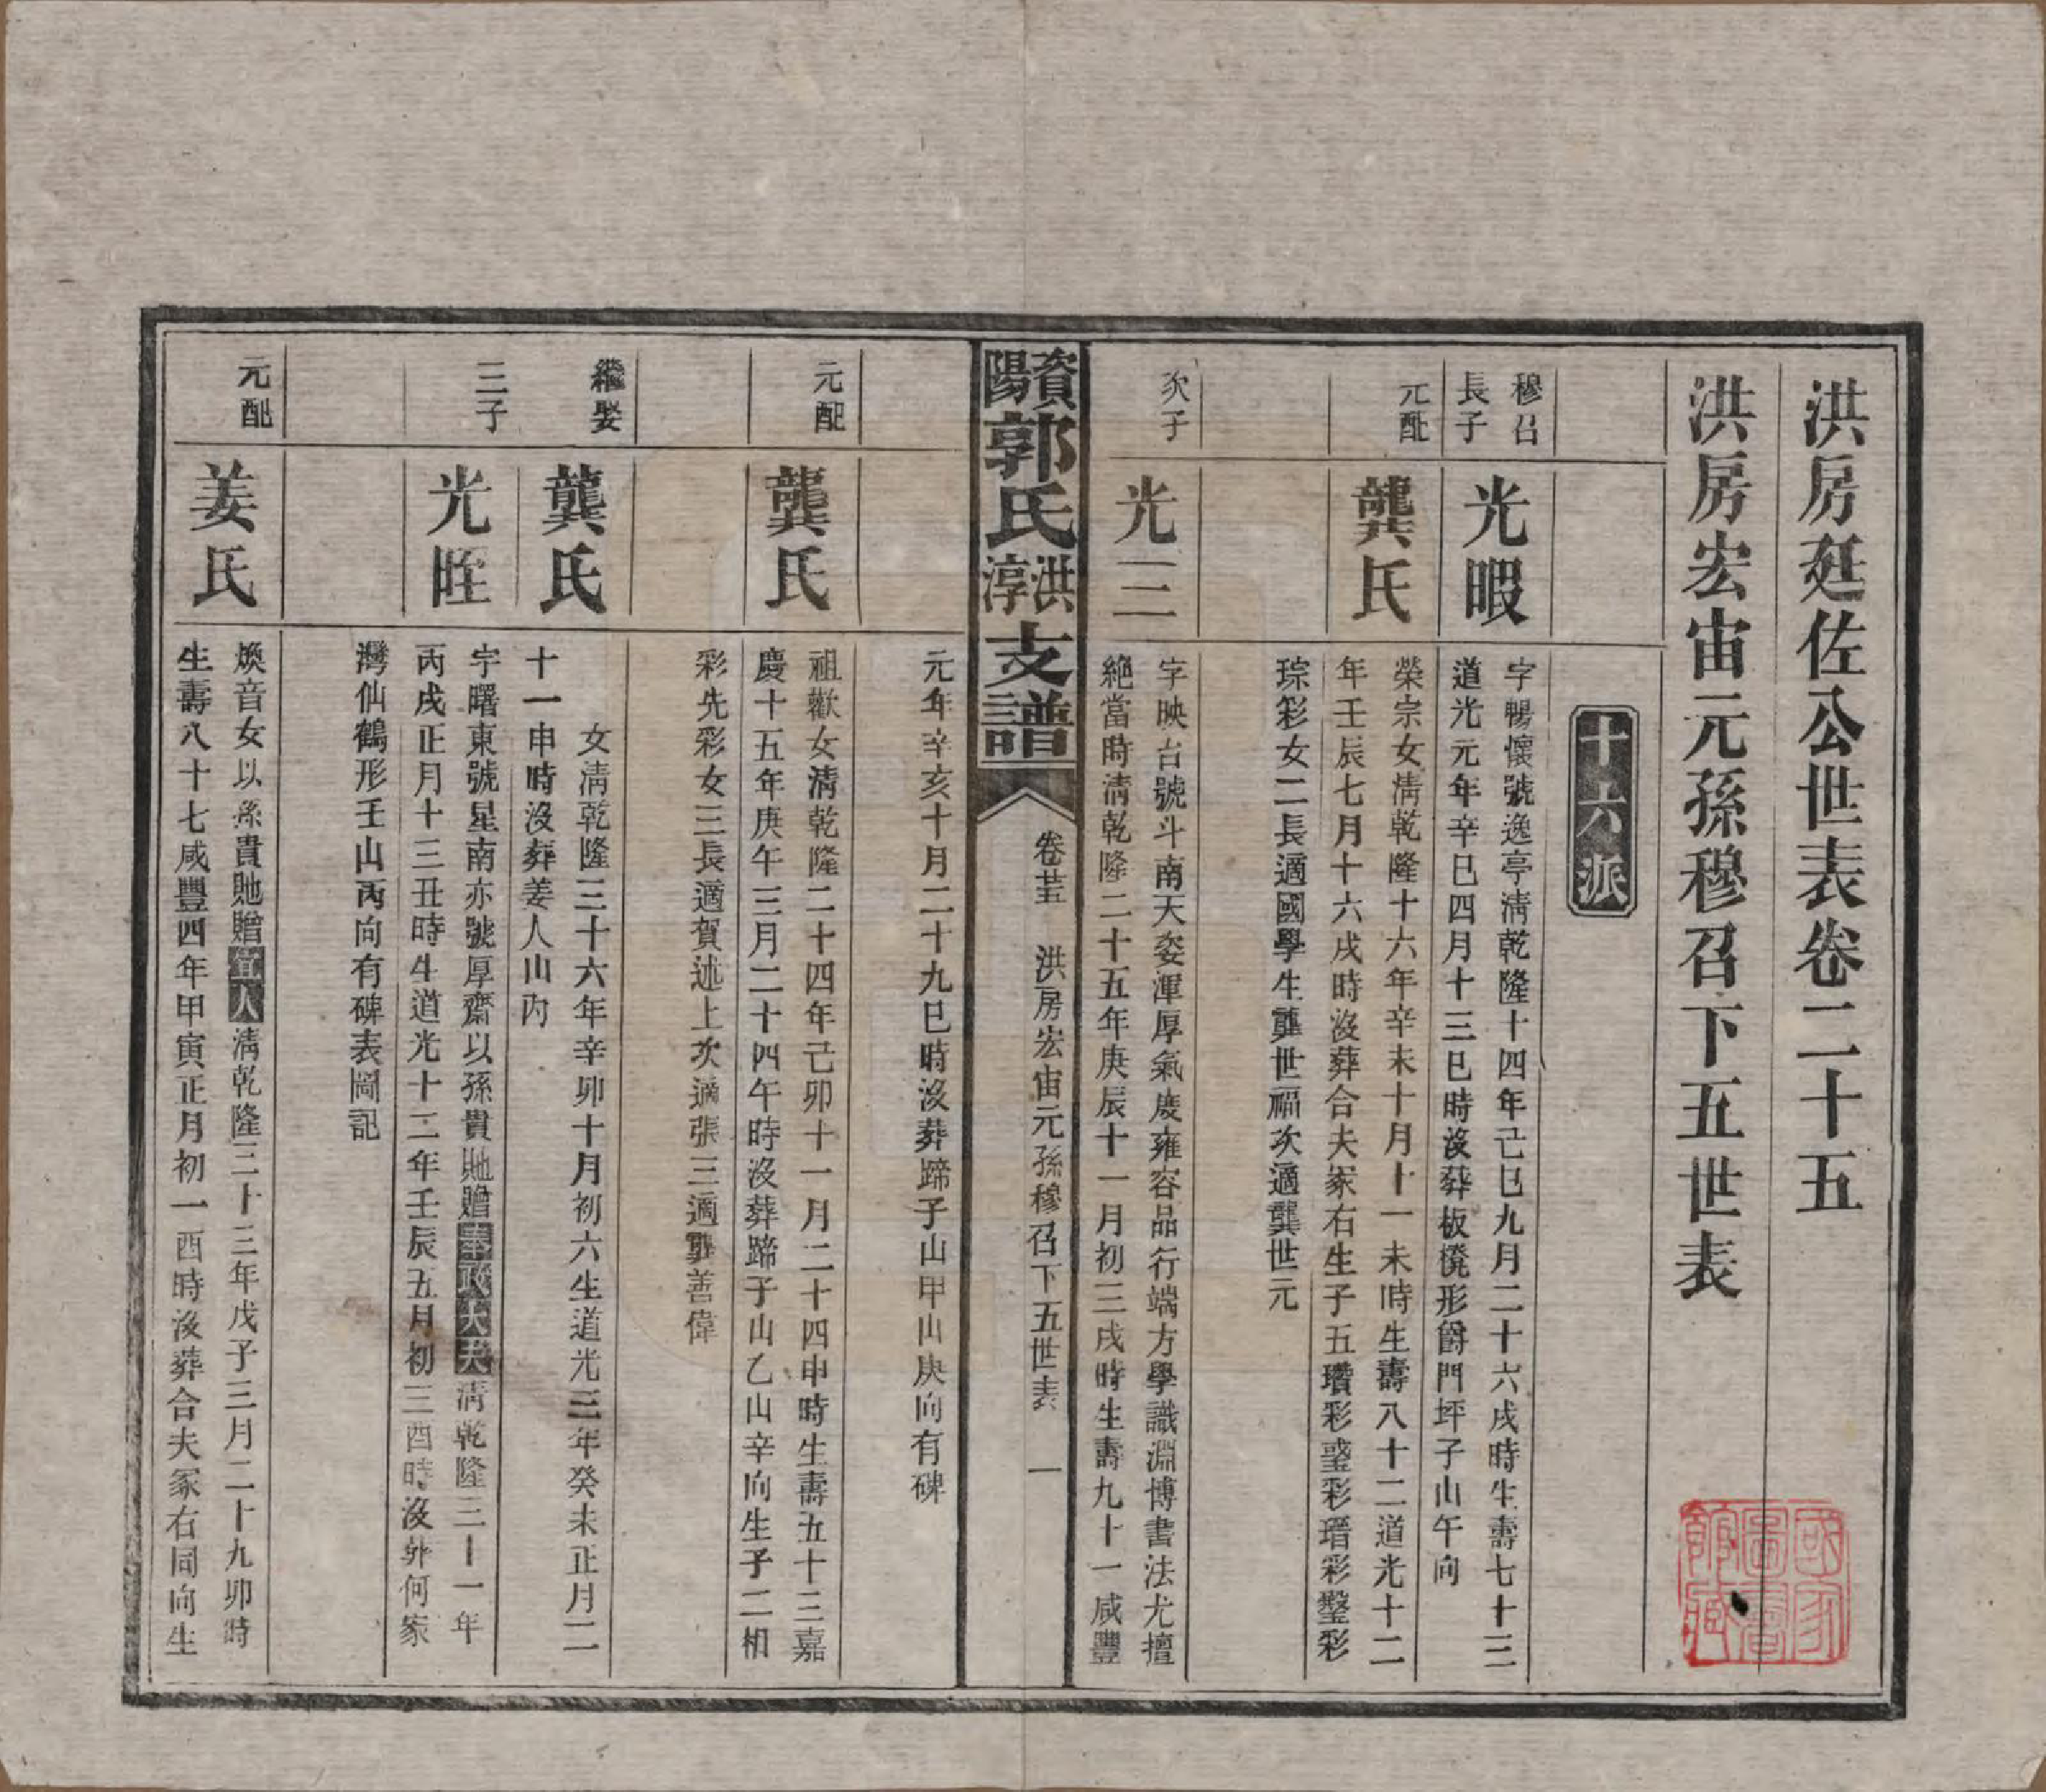 洪房廷佐公世表卷二十五
洪房宏宙元孫穆召下五世表
十六派
穆召
長子
光暇
字暢懷號逸亭清乾隆十四年己巳九月二十六戌時生壽七十三
道光元年辛巳四月十三巳時沒葬板櫈形爵門坪子山午向
元配
龔氏
榮宗女清乾隆十六年辛未十月十一未時生壽八十二道光十二
年壬辰七月十六戌時沒葬合夫冢右生子五瓚彩瑬彩瑨彩鏧彩
琮彩女二長適國學生龔世福次適龔世元
次子
光二
字映台號斗南天姿渾厚氣度雍容品行端方學識淵博書法尤擅
絕當時清乾隆二十五年庚辰十一月初三戌時生壽九十一咸豐
資陽郭氏洪淳支譜
卷廿五
洪房宏宙元孫穆召下五世表
一
元年辛亥十月二十九巳時沒葬蹄子山甲山庚向有碑
元配
龔氏
祖歡女清乾隆二十四年己卯十一月二十四申時生壽五十三嘉
慶十五年庚午三月二十四午時沒葬蹄子山乙山辛向生子二相
彩先彩女三長適賀述上次適張三適龔善偉
繼娶
龔氏
女清乾隆三十六年辛卯十月初六生道光三年癸未正月二
十一申時沒葬姜人山內
三子
光晊
字曙東號星南亦號厚齋以孫貴貤贈奉政大夫清乾隆三十一年
丙戌正月十三丑時生道光十二年壬辰五月初三酉時沒葬何家
灣仙鶴形壬山丙向有碑表圖記
元配
姜氏
煥音女以孫貴貤贈宜人清乾隆三十三年戊子三月二十九卯時
生壽八十七咸豐四年甲寅正月初一酉時沒葬合夫冢右同向生
國家圖書館藏